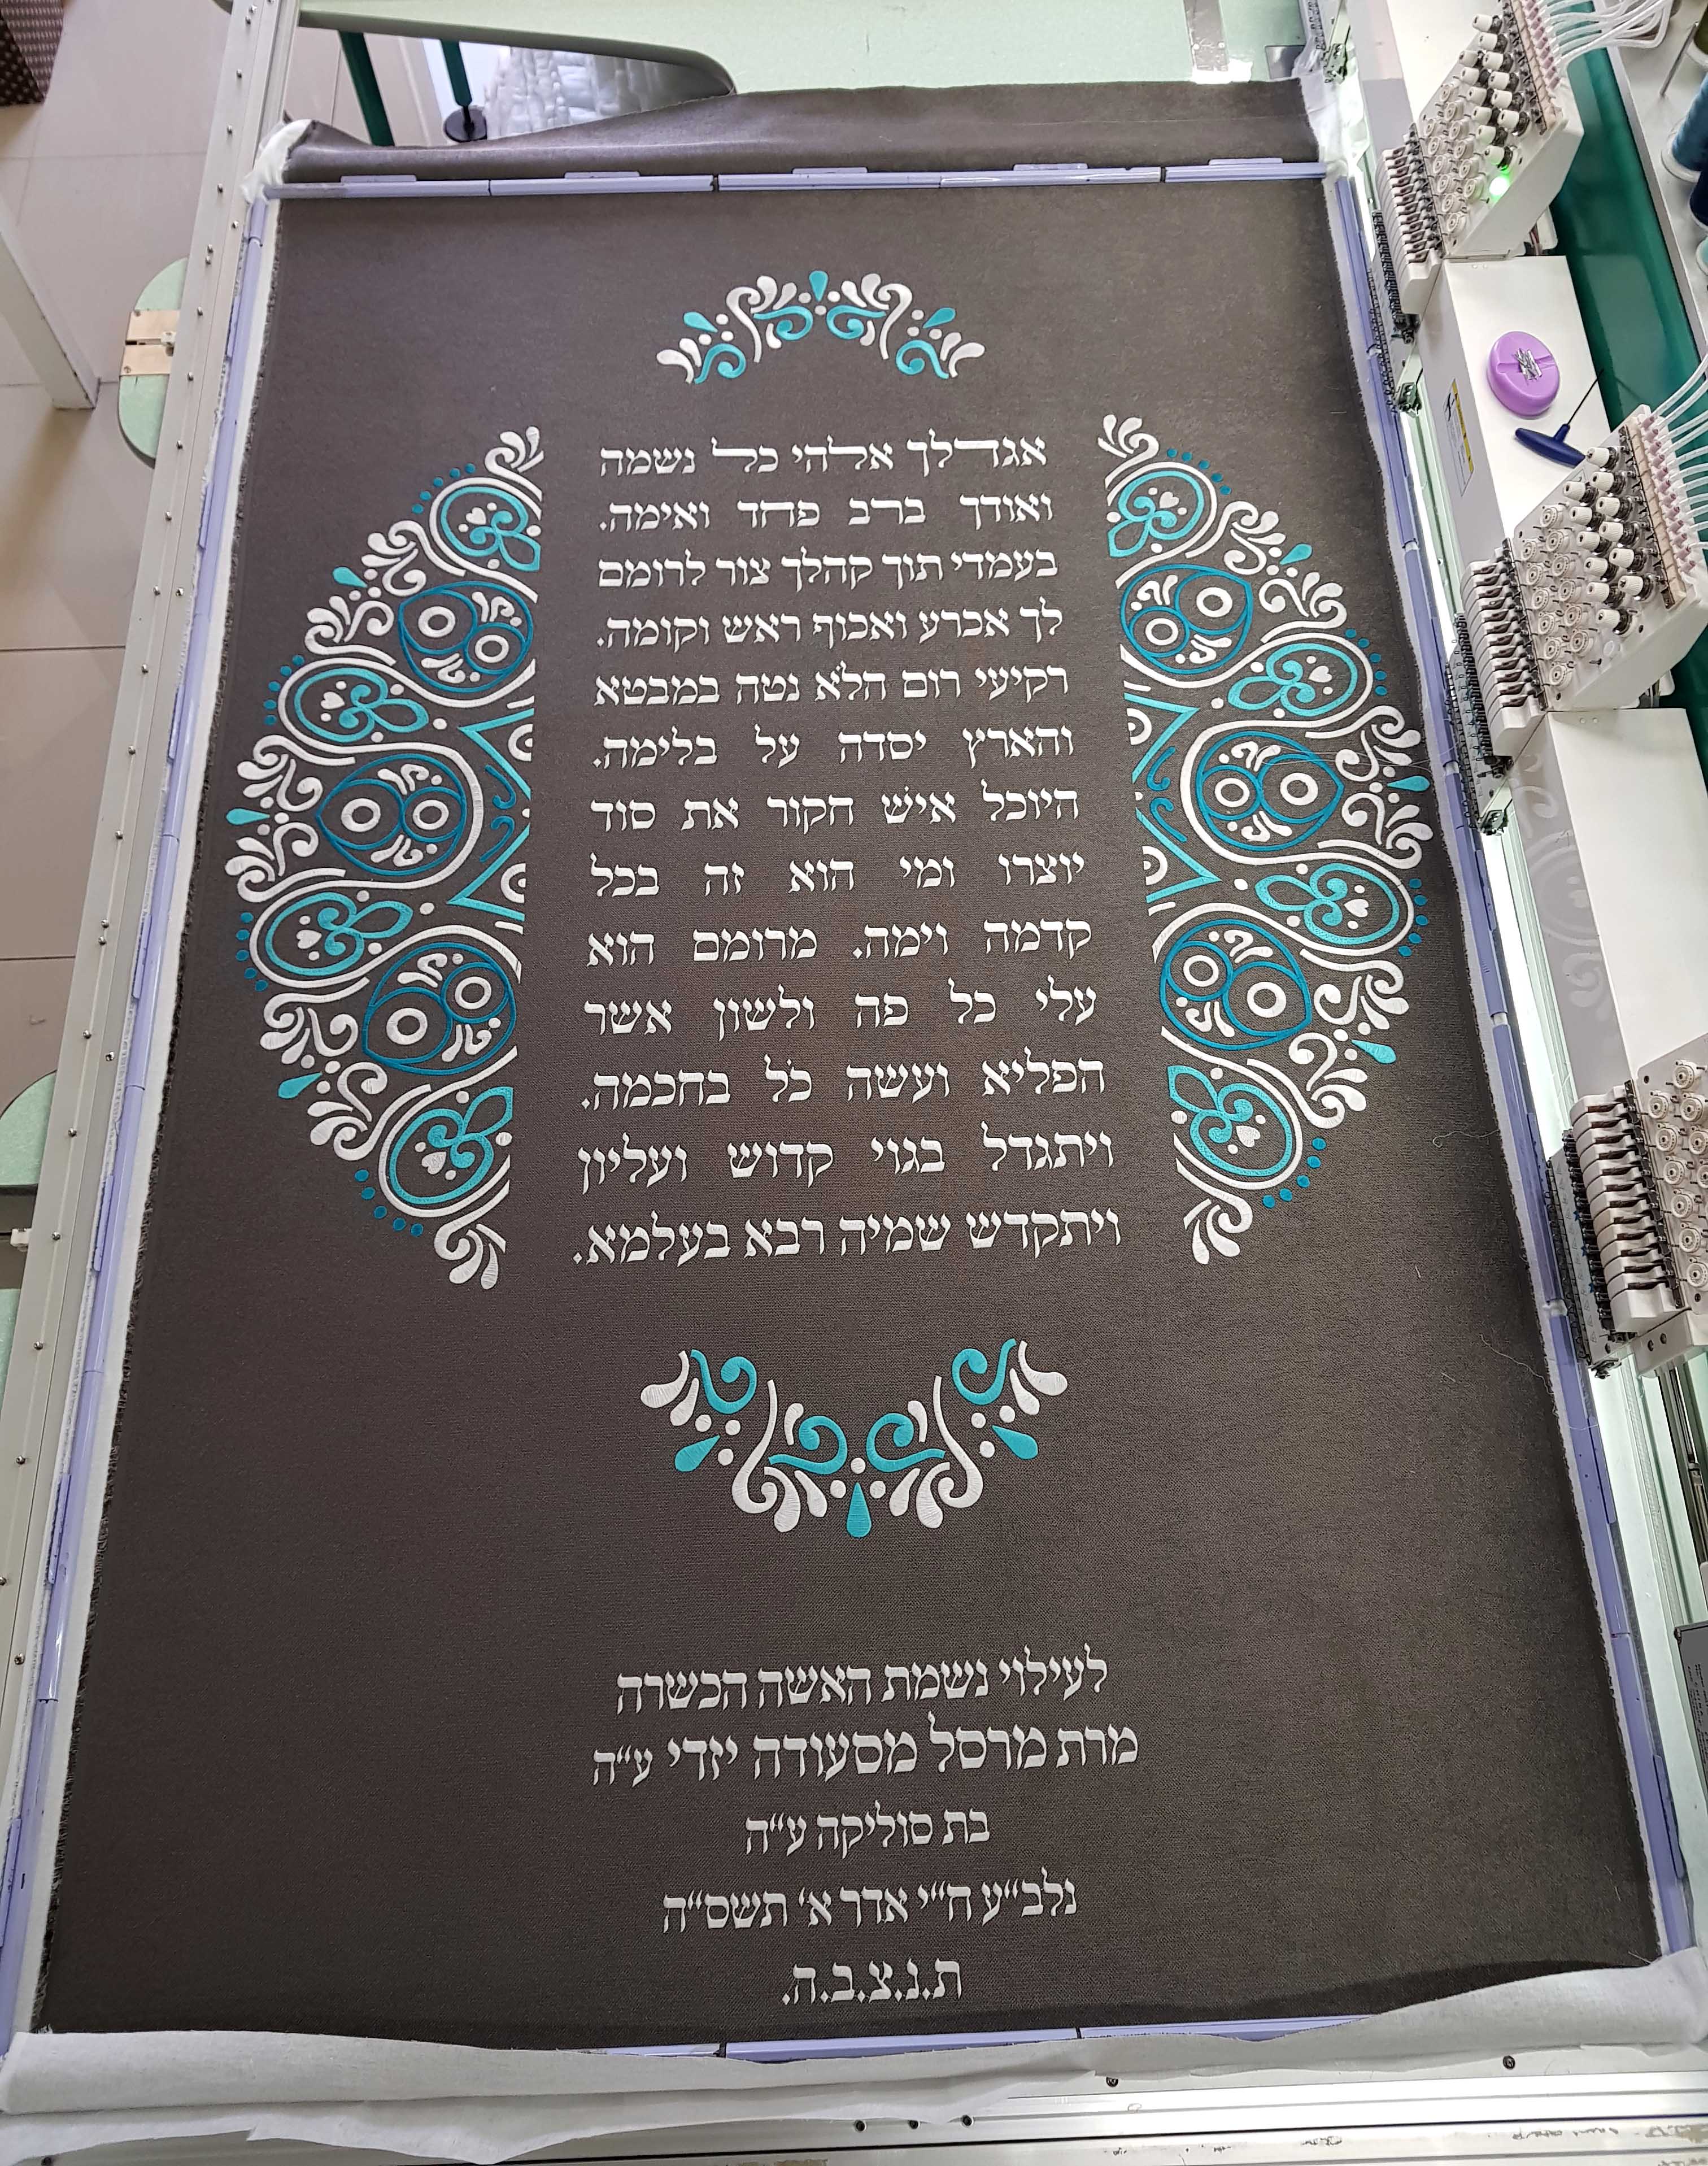 אגדלך אלהי כל נשמה
ואודך ברב פחד ואימה.
בעמדי תוך קהלך צור לרומם
לך אכרע ואכוף ראש וקומה.
רקיעי רום הלא נטה במבטא
והארץ יסדה על בלימה.
היוכל איש חקור את סוד
יוצרו ומי הוא זה בכל
קדמה וימה. מרומם הוא
עלי כל פה ולשון אשר
הפליא ועשה כל בחכמה.
ויתגדל בגוי קדוש ועליון
ויתקדש שמיה רבא בעלמא.
לעילוי נשמת האשה הכשרה
מרת מרסל מסעודה יזדי ע"ה
בת סוליקה ע"ה
נלב"ע ח"י אדר א' תשס"ה
ת.נ.צ.ב.ה.